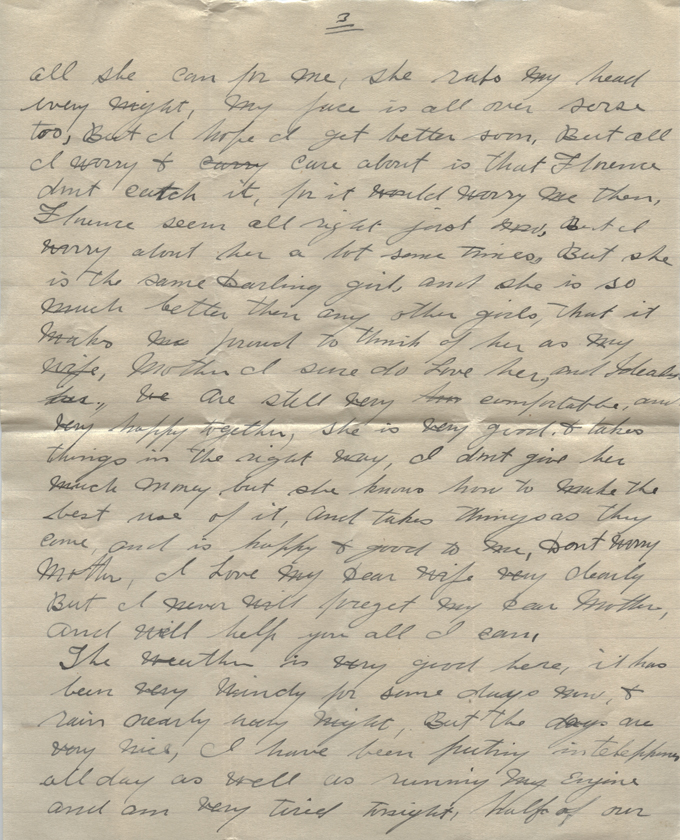 3
all she can for me, she rubs my head
every night, my face is all over sorse
too, But I hope I get better soon, But all
I worry & carry care about is that Florence
dont catch it, for it would worry me then,
Florence seem all right just now, But I
worry about her a lot some times, But she
is the same Darling girl, and she is so
much better then any other girls, that it
makes me proud to think of her as my
wife, Mother I sure do Love her, and Idealse
her, We are still very comfortable, and
very happy together, she is very good. & takes
things in the right way, I dont give her
much money but she knows how to make the
best use of it, and takes things as they
come, and is happy & good to me, Dont worry
Mother, I Love my Dear wife very dearly
But I never will forget my Dear Mother,
and will help you all I can,
The weather is very good here, it has
been very windy for some days now, &
rain nearly evely night, But the days are
very nice, I have been puting in
all day as well as running my Engine
and am very tired tonight, half of our